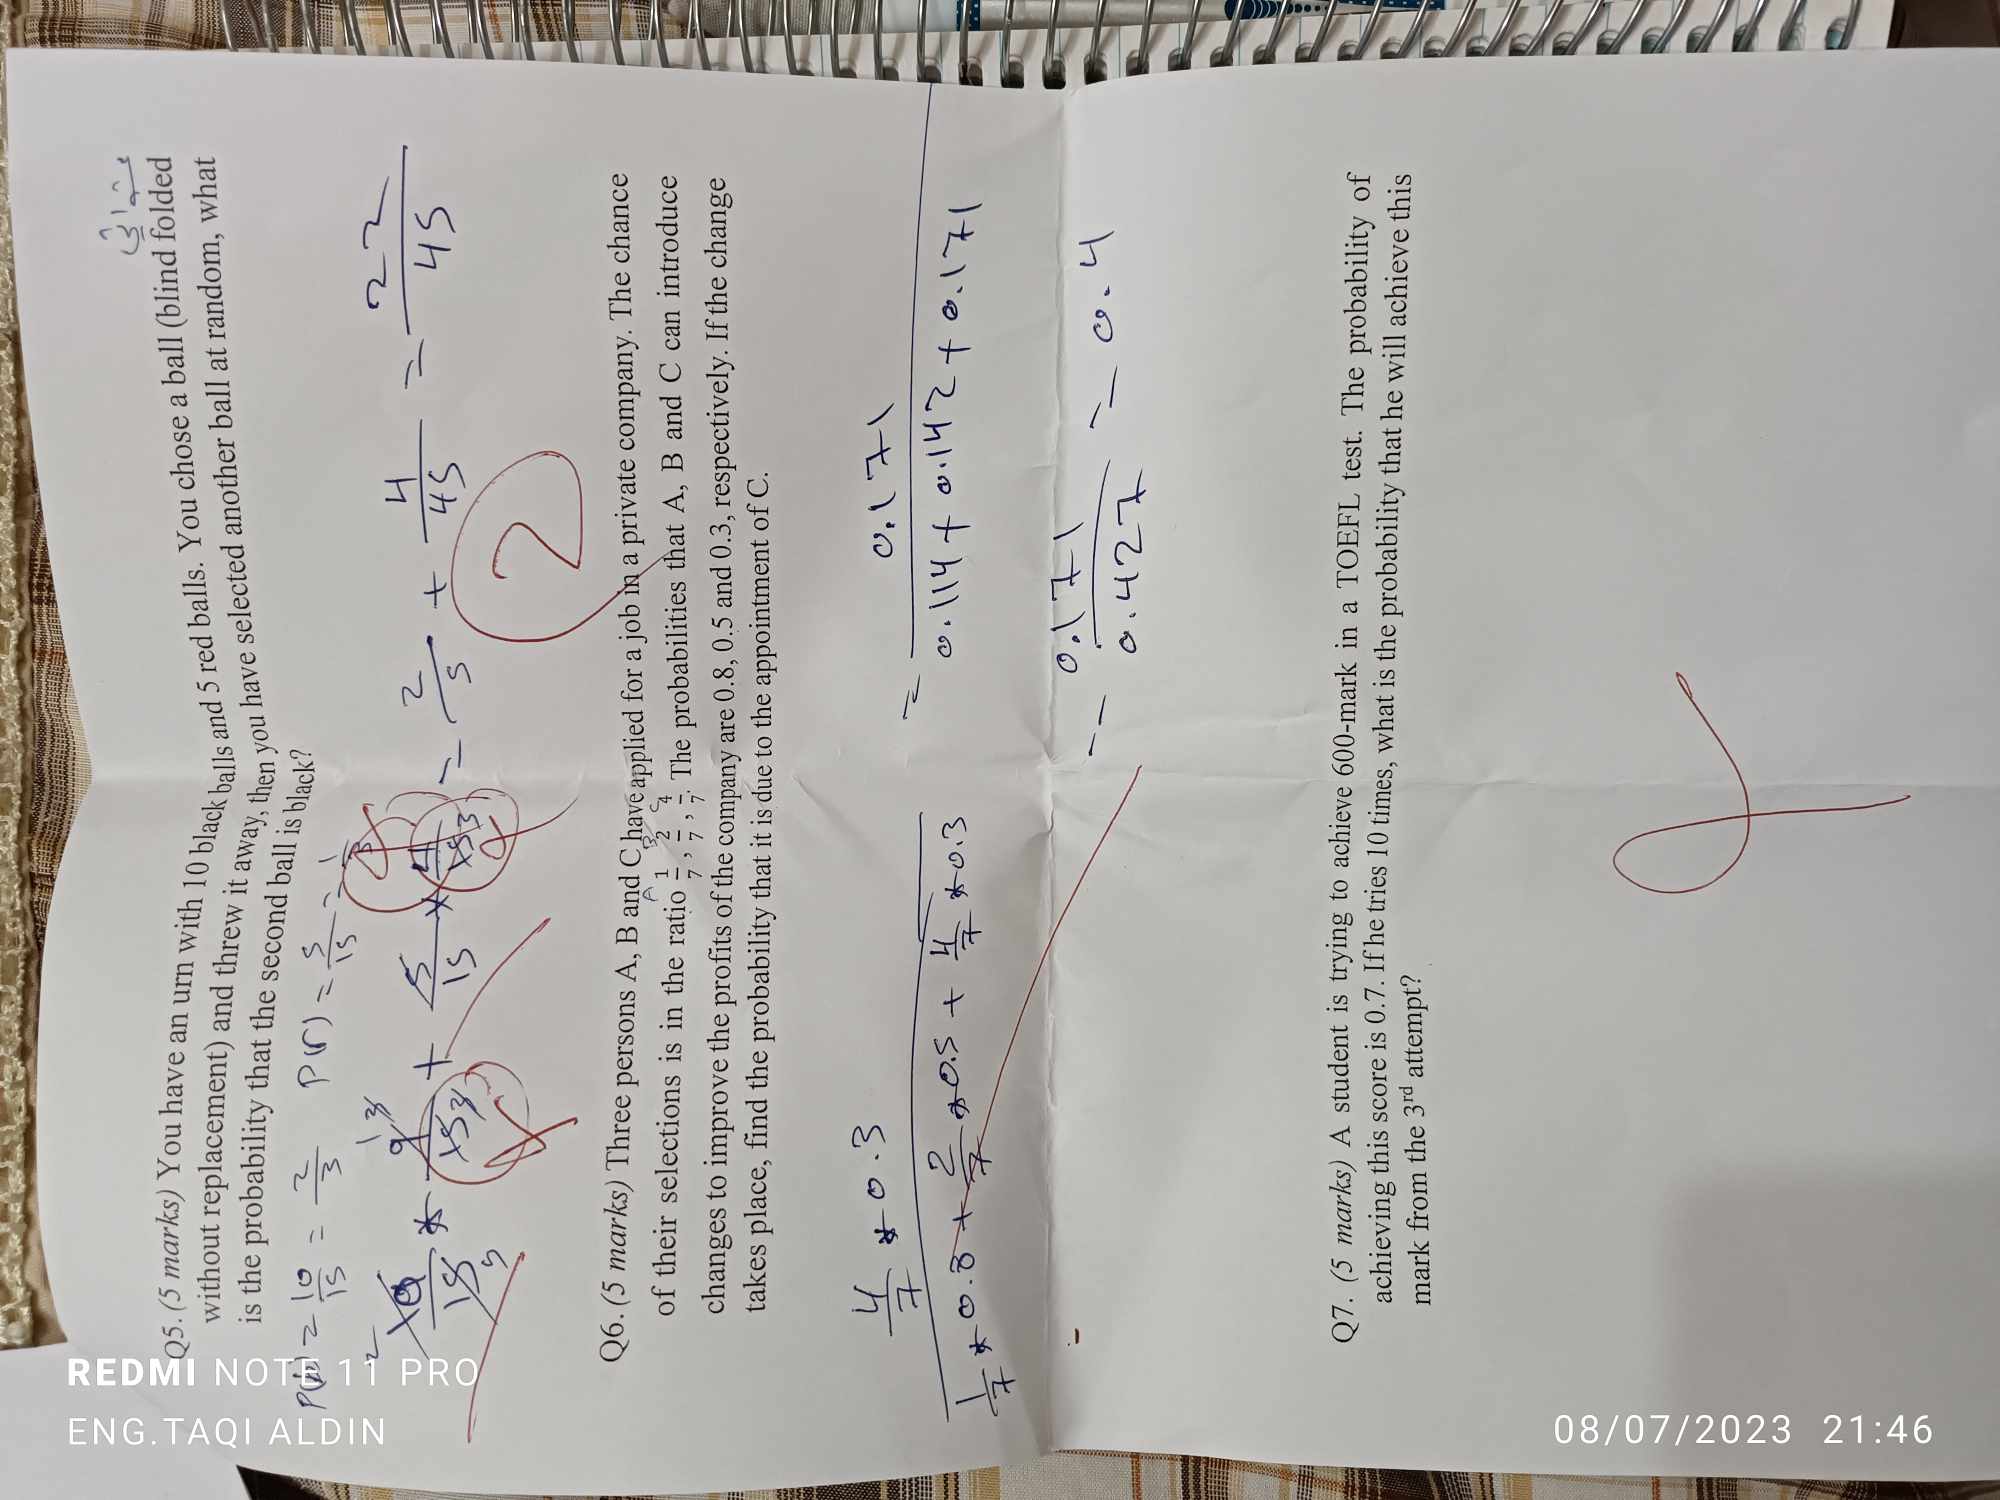 عشوائي
Q5. (5 marks) You have an urn with 10 black balls and 5 red balls. You chose a ball (blind folded
without replacement) and threw it away, then you have selected another ball at random, what
is the probability that the second ball is black?
P(b) = 10/15 = 2/3 P(r) = 5/15 = 1/3
10/15 * 9/15 + 5/15 * 4/15 = 2/5 + 4/45 = 22/45
2
Q6. (5 marks) Three persons A, B and C have applied for a job in a private company. The chance
A B C
of their selections is in the ratio 1/7, 2/7, 4/7. The probabilities that A, B and C can introduce
changes to improve the profits of the company are 0.8, 0.5 and 0.3, respectively. If the change
takes place, find the probability that it is due to the appointment of C.
4/7 * 0.3 = 0.171
1/7 * 0.8 + 2/7 * 0.5 + 4/7 * 0.3 0.114 + 0.142 + 0.171
= 0.171/0.427 = 0.4
Q7. (5 marks) A student is trying to achieve 600-mark in a TOEFL test. The probability of
achieving this score is 0.7. If he tries 10 times, what is the probability that he will achieve this
mark from the 3rd attempt?
REDMI NOTE 11 PRO
ENG.TAQI ALDIN
08/07/2023 21:46